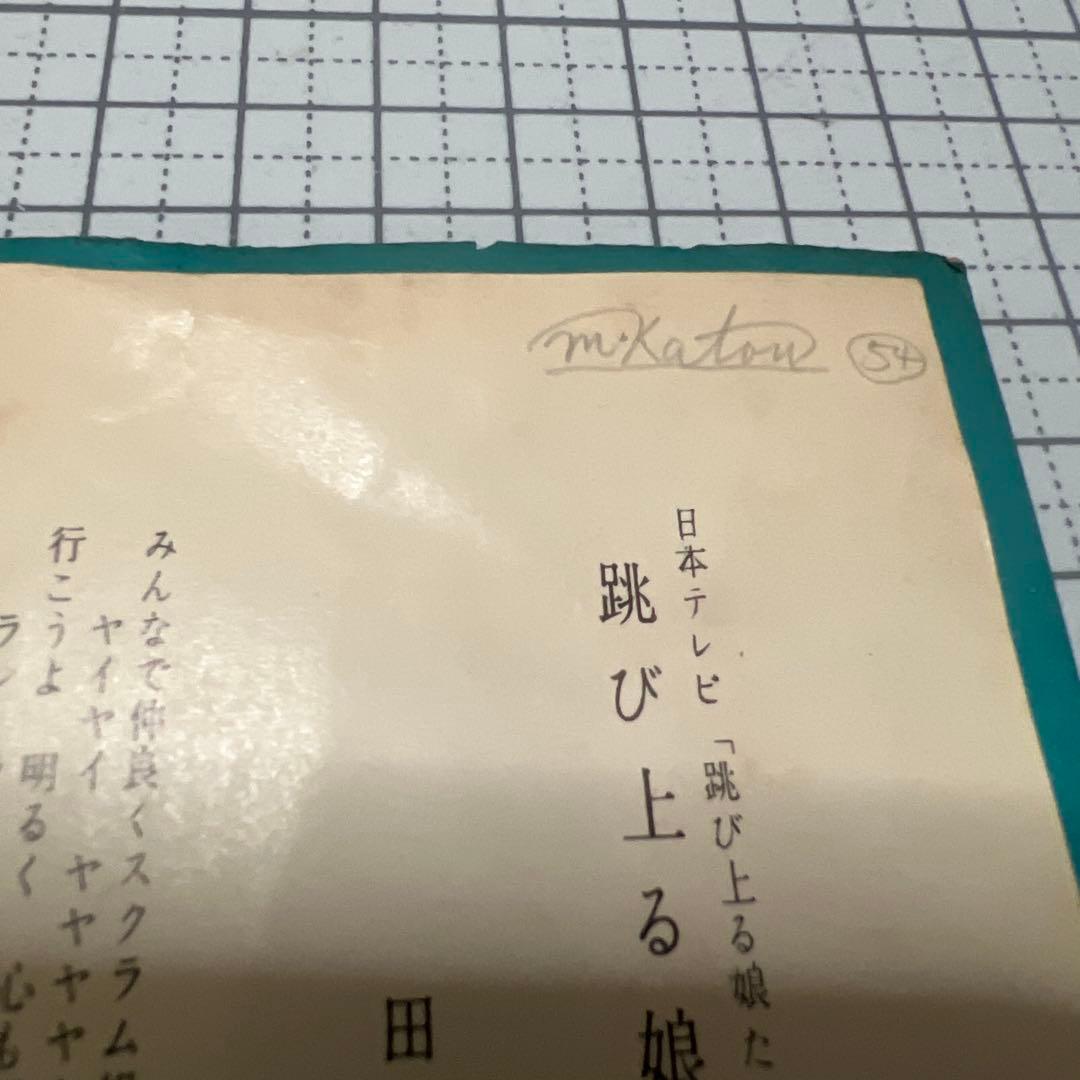 m.Katou 54
日本テレビ「跳び上る娘た
跳び上る娘
田
みんなで仲良くスクラム
ヤイヤイ ヤヤヤヤ
行こうよ 明るく 心も
ラン